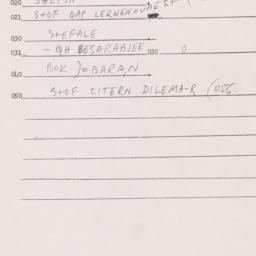 020
021 S+OF QAP LERNENKUMEST (
030 S+EFALE
031 - QH BESARABIER 032 0
BOK) = BARA,N
040
050 S+OF CITERN DILEMA-R (056-